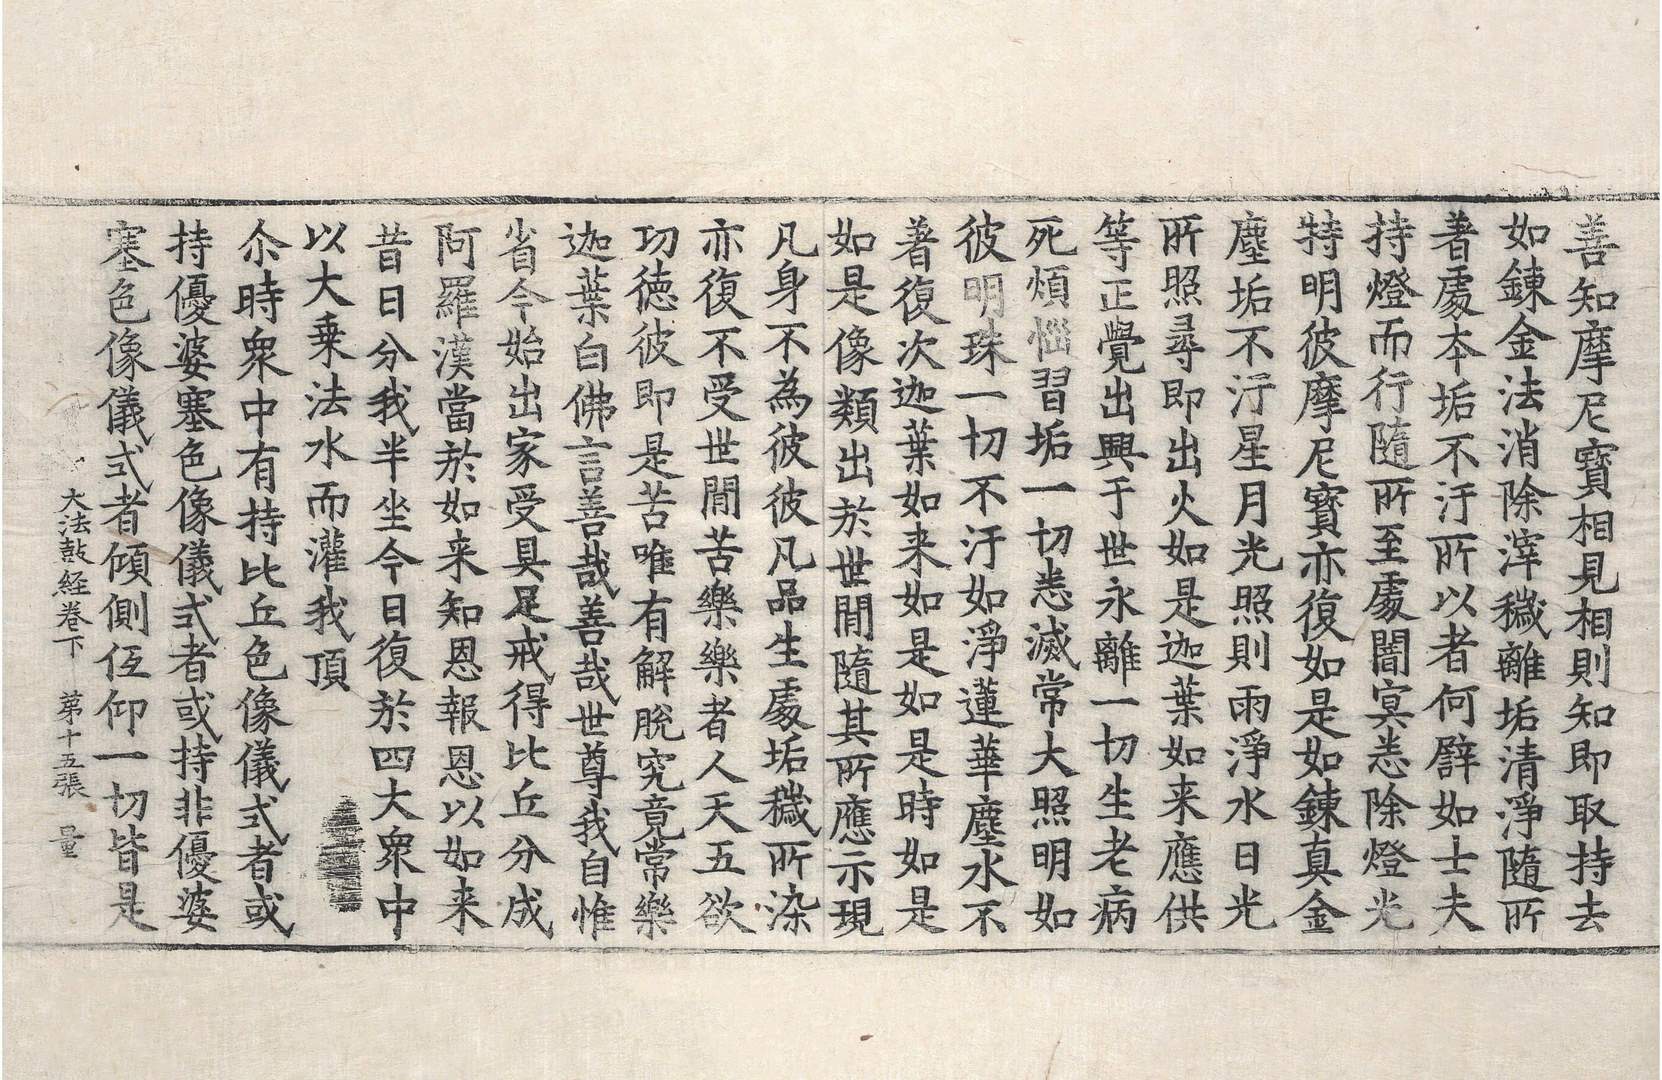 善知摩尼寶相見相則知即取持去
如鍊金法消除滓穢離垢清淨隨所
著處本垢不汙所以者何譬如士夫
持燈而行隨所至處闇冥悉除燈光
特明彼摩尼寶亦復如是如鍊真金
塵垢不汙星月光照則雨淨水日光
所照尋即出火如是迦葉如来應供
等正覺出興于世永離一切生老病
死煩惱習垢一切悉滅常大照明如
彼明珠一切不汙如淨蓮華塵水不
著復次迦葉如来如是如是時如是
如是像類出於世間隨其所應示現
凡身不為彼彼凡品生處垢穢所染
亦復不受世間苦樂樂者人天五欲
功德彼即是苦唯有解脫究竟常樂
迦葉白佛言善哉善哉世尊我自惟
省今始出家受具足戒得比丘分成
阿羅漢當於如来知恩報恩以如来
昔日分我半坐今日復於四大衆中
以大乗法水而灌我頂
尒時衆中有持比丘色像儀式者或
持優婆塞色像儀式者或持非優婆
塞色像儀式者傾側伍仰一切皆是
大法鼓経卷下 苐十五張 量